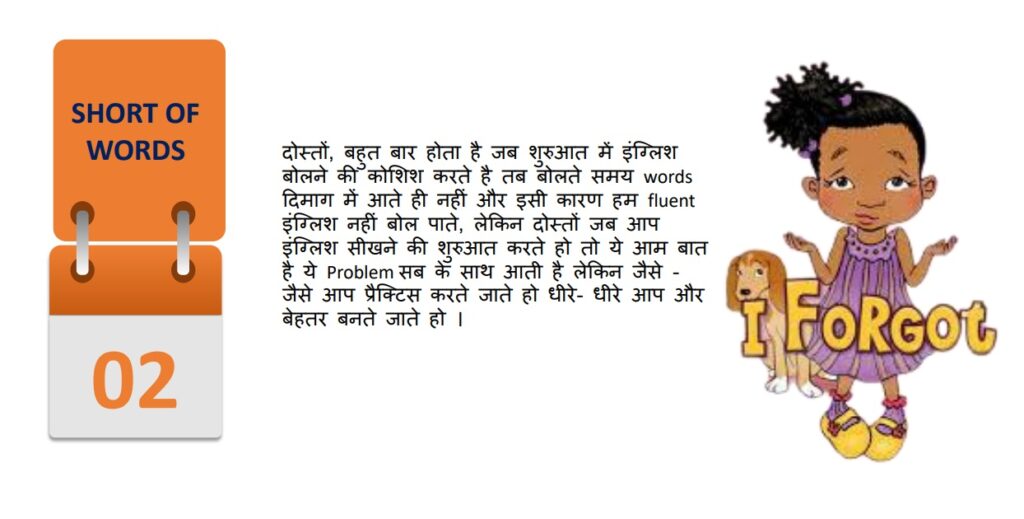 SHORT OF
WORDS
02
दोस्तों, बहुत बार होता है जब शुरुआत में इंग्लिश
बोलने की कोशिश करते है तब बोलते समय words
दिमाग में आते ही नहीं और इसी कारण हम fluent
इंग्लिश नहीं बोल पाते, लेकिन दोस्तों जब आप
इंग्लिश सीखने की शुरुआत करते हो तो ये आम बात
है ये Problem सब के साथ आती है लेकिन जैसे -
जैसे आप प्रैक्टिस करते जाते हो धीरे- धीरे आप और
बेहतर बनते जाते हो ।
I FoRGot